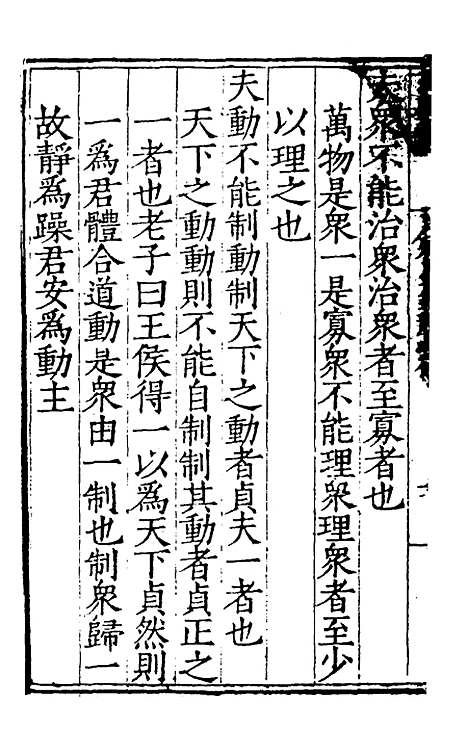 夫衆不能治衆治衆者至寡者也
萬物是衆一是寡衆不能理衆理衆者至少
以理之也
夫動不能制動制天下之動者貞夫一者也
天下之動動則不能自制制其動者貞正之
一者也老子曰王侯得一以爲天下貞然則
一爲君體合道動是衆由一制也制衆歸一
故靜爲躁君安爲動主